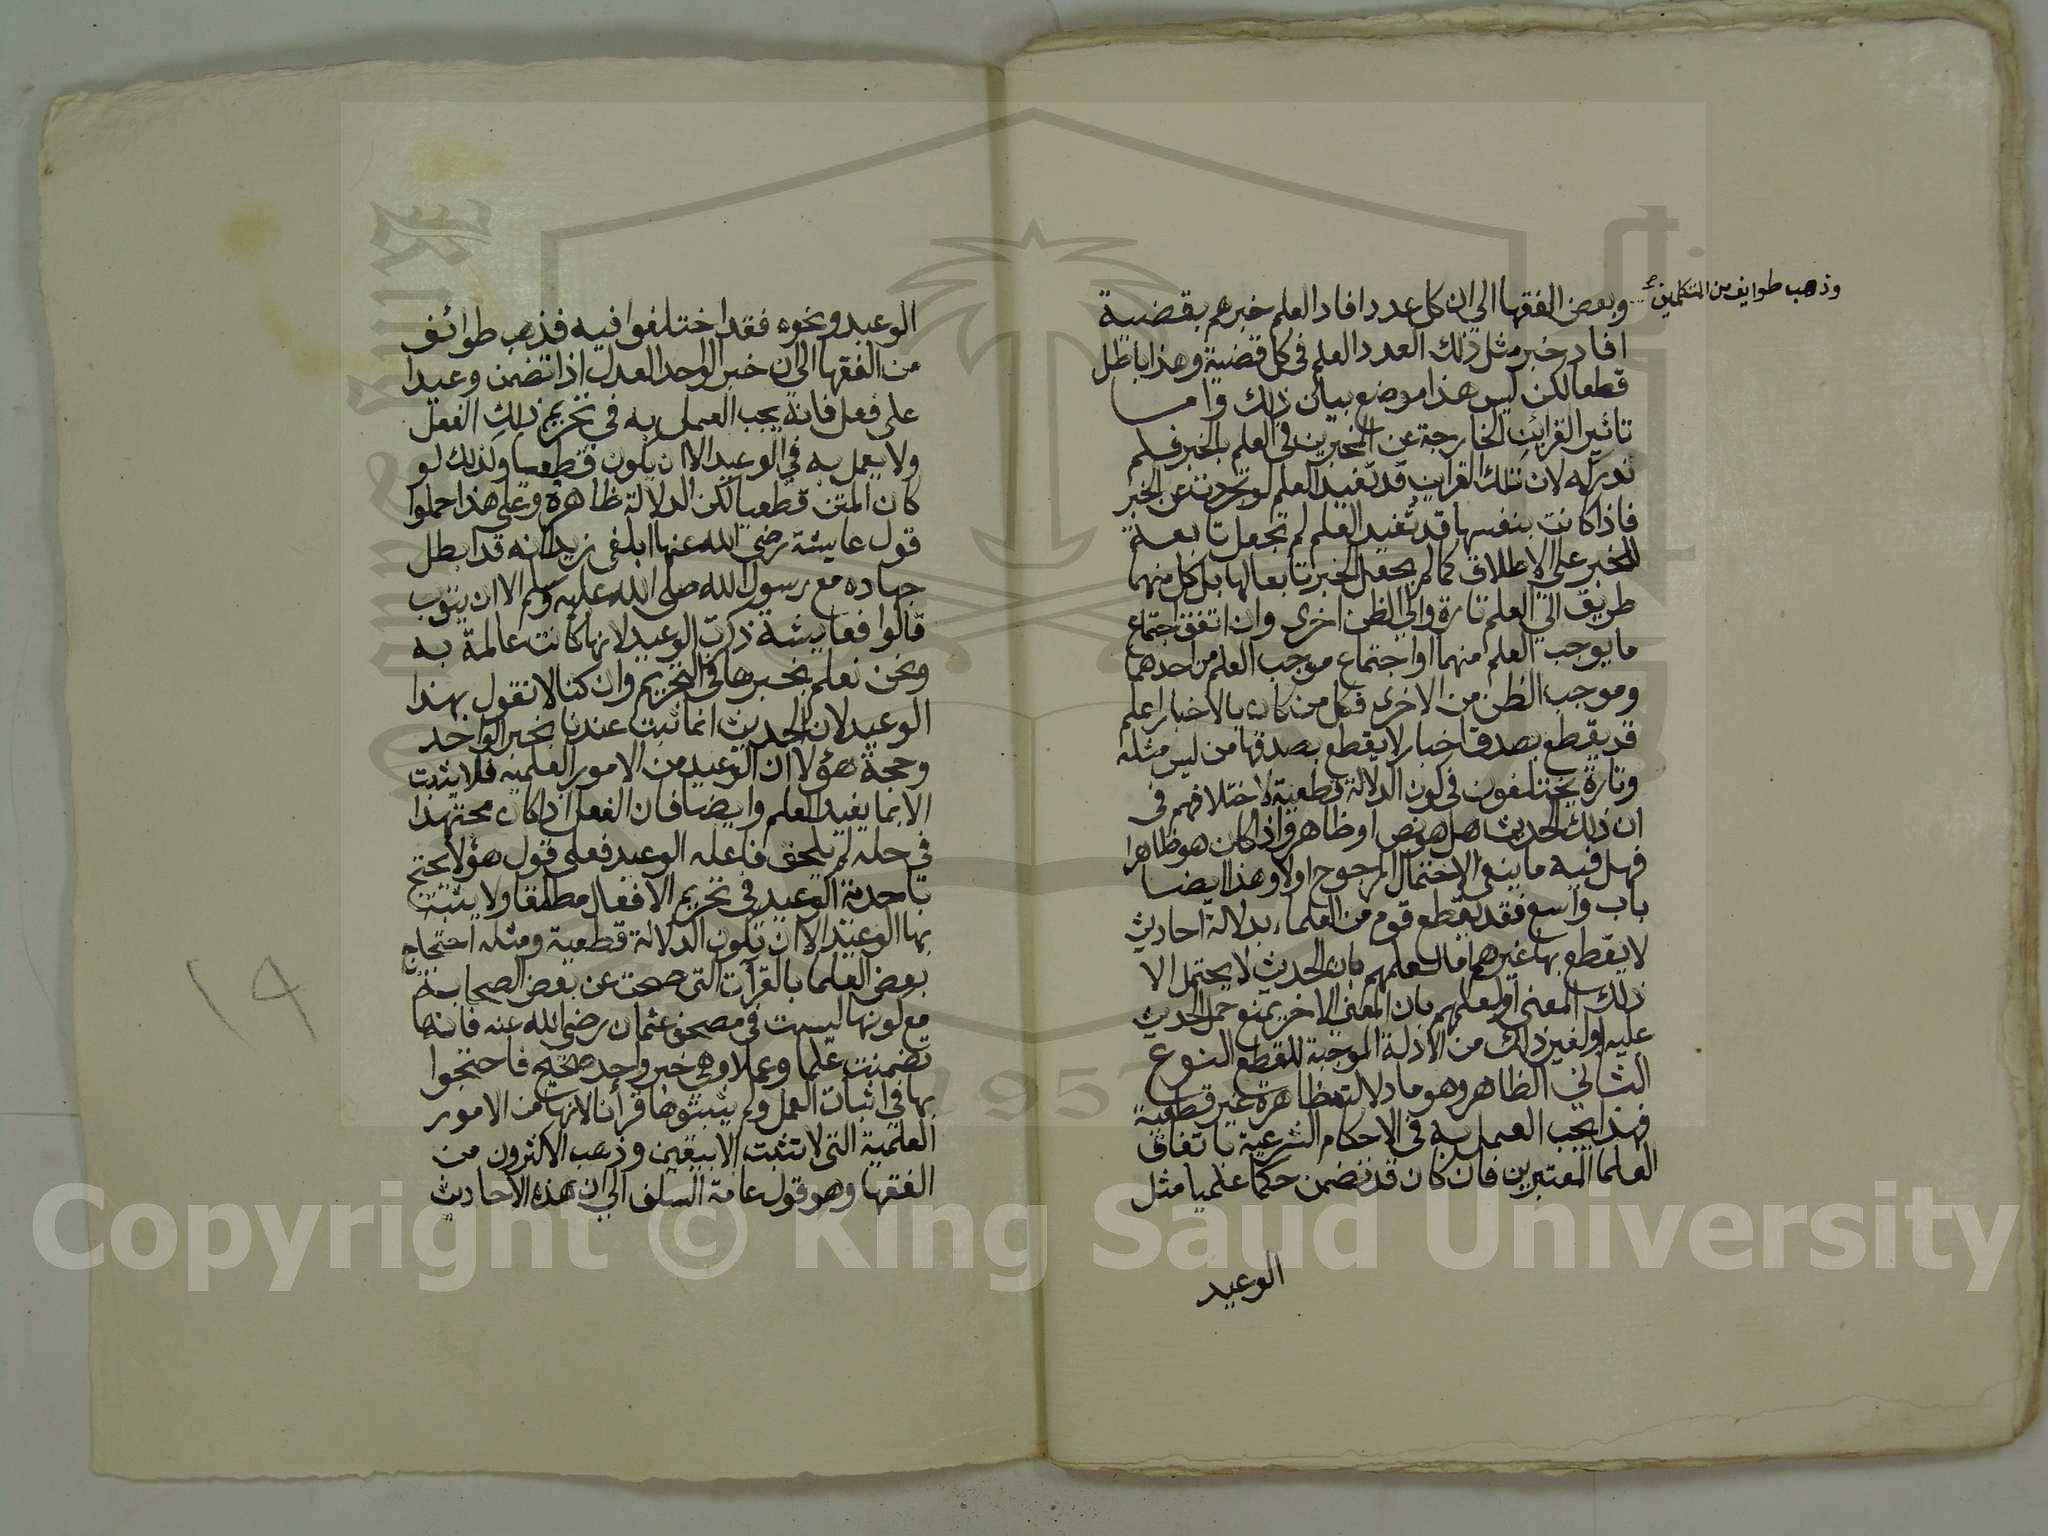 وذهب طوايف من المتكلمين
وبعض الفقها الى ان كل عدد افاد العلم خبرهم بقضية
افاد خبر مثل ذلك العدد العلم في كل قضية وهذا باطل
قطعا لكن ليس هذا موضع بيان ذلك واما
تاثير القرائن الخارجة عن المخبرين في العلم بالخبر فلم
نذكره لان تلك القراين قد تفيد العلم لو تجردت عن الخبر
فاذا كانت بنفسها قد تفيد العلم لم تجعل تابعة
للخبر على الاطلاق كما لم يجعل الخبر تابعا لها بل كل منهما
طريق الى العلم تارة والى الظن اخرى وان اتفق اجتماع
ما يوجب العلم منهما او اجتماع موجب العلم من احدهما
وموجب الظن من الاخرى فكل من كان بالاخبار اعلم
قد يقطع بصدق اخبار لا يقطع بصدقها من ليس مثله
وتارة يختلفون في كون الدلالة قطعية لاختلافهم في
ان ذلك الحديث هل هو نص او ظاهر واذا كان هو ظاهرا
فهل فيه ما ينفي الاحتمال المرجوح اولا وهذا ايضا
باب واسع فقد يقطع قوم من العلماء بدلالة احاديث
لا يقطع بها غيرهم اما لعلمهم بان الحديث لا يحتمل الا
ذلك المعنى او لعلمهم بان المعنى الاخر يمنع حمل الحديث
عليه او لغير ذلك من الادلة الموجبة للقطع النوع
الثاني الظاهر وهو ما دلالته ظاهرة غير قطعية
فهذا يجب العمل به في الاحكام الشرعية باتفاق
العلما المعتبرين فان كان قد تضمن حكما علميا مثل
الوعيد
الوعيد ونحوه فقد اختلفوا فيه فذهب طوائف
من الفقها الى ان خبر الواحد العدل اذا تضمن وعيدا
على فعل فانه يجب العمل به في تحريم ذلك الفعل
ولا يعمل به في الوعيد الا ان يكون قطعيا وكذلك لو
كان المتن قطعيا لكن الدلالة ظاهرة وعلى هذا حملوا
قول عايشة رضي الله عنها ابلغي زيدا انه قد ابطل
جهاده مع رسول الله صلى الله عليه وسلم الا ان يتوب
قالوا فعايشة ذكرت الوعيد لانها كانت عالمة به
ونحن نعلم بخبرها في التحريم وان كنا لا نقول بهذا
الوعيد لان الحديث انما ثبت عندنا بخبر الواحد
وحجة هؤلا ان الوعيد من الامور العلمية فلا يثبت
الا بما يفيد العلم وايضا فان الفعل اذا كان مجتهدا
في حله لم يلحق فاعله الوعيد فعلى قول هؤلا يحتج
باحاديث الوعيد في تحريم الافعال مطلقا ولا يثبت
بها الوعيد الا ان تكون الدلالة قطعية ومثله احتجاج
بعض العلما بالقرآت التي صحت عن بعض الصحابة
مع كونها ليست في مصحف عثمان رضي الله عنه فانها
تضمنت علما وعملا وهي خبر واحد صحيح فاحتجوا
بها في اثبات العمل ولم يثبتوها قرأنا لانها من الامور
العلمية التي لا تثبت الا بيقين وذهب الاكثرون من
الفقها وهو قول عامة السلف الى ان هذه الاحاديث
١٩
1957
Copyright © King Saud University